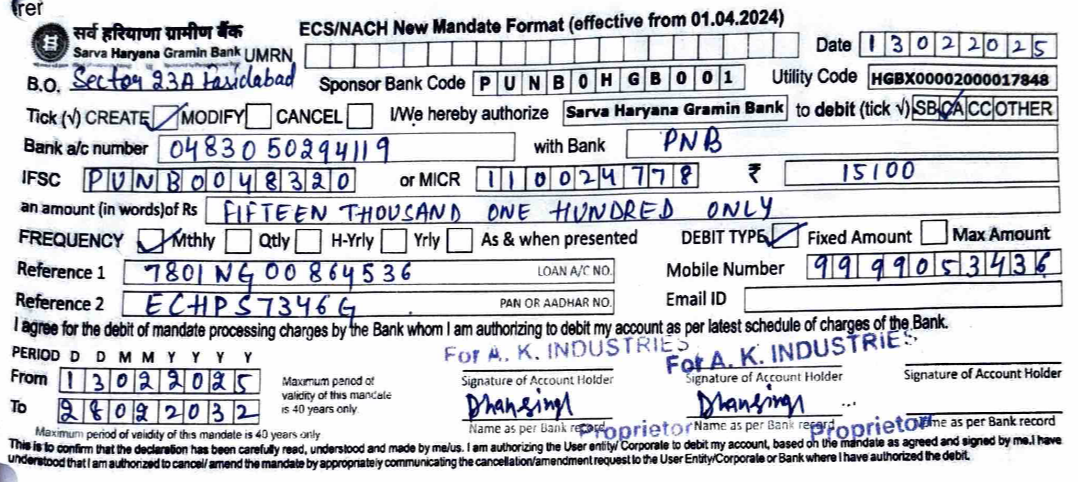 rer
ECS/NACH New Mandate Format (effective from 01.04.2024)
सर्व हरियाणा ग्रामीण बैंक
Sarva Haryana Gramin Bank UMRN
Date 13022025
B.O. Sector 23A Faridabad Sponsor Bank Code PUNB0HGB001 Utility Code HGBX00002000017848
Tick (√) CREATE MODIFY CANCEL I/We hereby authorize Sarva Haryana Gramin Bank to debit (tick √) SB CA CC OTHER
Bank a/c number 0483050294119 with Bank PNB
IFSC PUNB0048320 or MICR 110024778 ₹ 15100
an amount (in words)of Rs FIFTEEN THOUSAND ONE HUNDRED ONLY
FREQUENCY Mthly Qtly H-Yrly Yrly As & when presented DEBIT TYPE Fixed Amount Max Amount
Reference 1 7801NG00864536 LOAN A/C NO. Mobile Number 9999053436
Reference 2 ECHPS7346G PAN OR AADHAR NO. Email ID
I agree for the debit of mandate processing charges by the Bank whom I am authorizing to debit my account as per latest schedule of charges of the Bank.
PERIOD D D M M Y Y Y Y
For A. K. INDUSTRIES For A. K. INDUSTRIES
From 13022025 Maximum period of validity of this mandate is 40 years only Signature of Account Holder Signature of Account Holder Signature of Account Holder
To 28022032 Dhansingh Dhansingh
Name as per Bank record Proprietor Name as per Bank record Proprietor Name as per Bank record
Maximum period of validity of this mandate is 40 years only
This is to confirm that the declaration has been carefully read, understood and made by me/us. I am authorizing the User entity/ Corporate to debit my account, based on the mandate as agreed and signed by me.I have
understood that I am authorized to cancel/ amend the mandate by appropriately communicating the cancellation/amendment request to the User Entity/Corporate or Bank where I have authorized the debit.